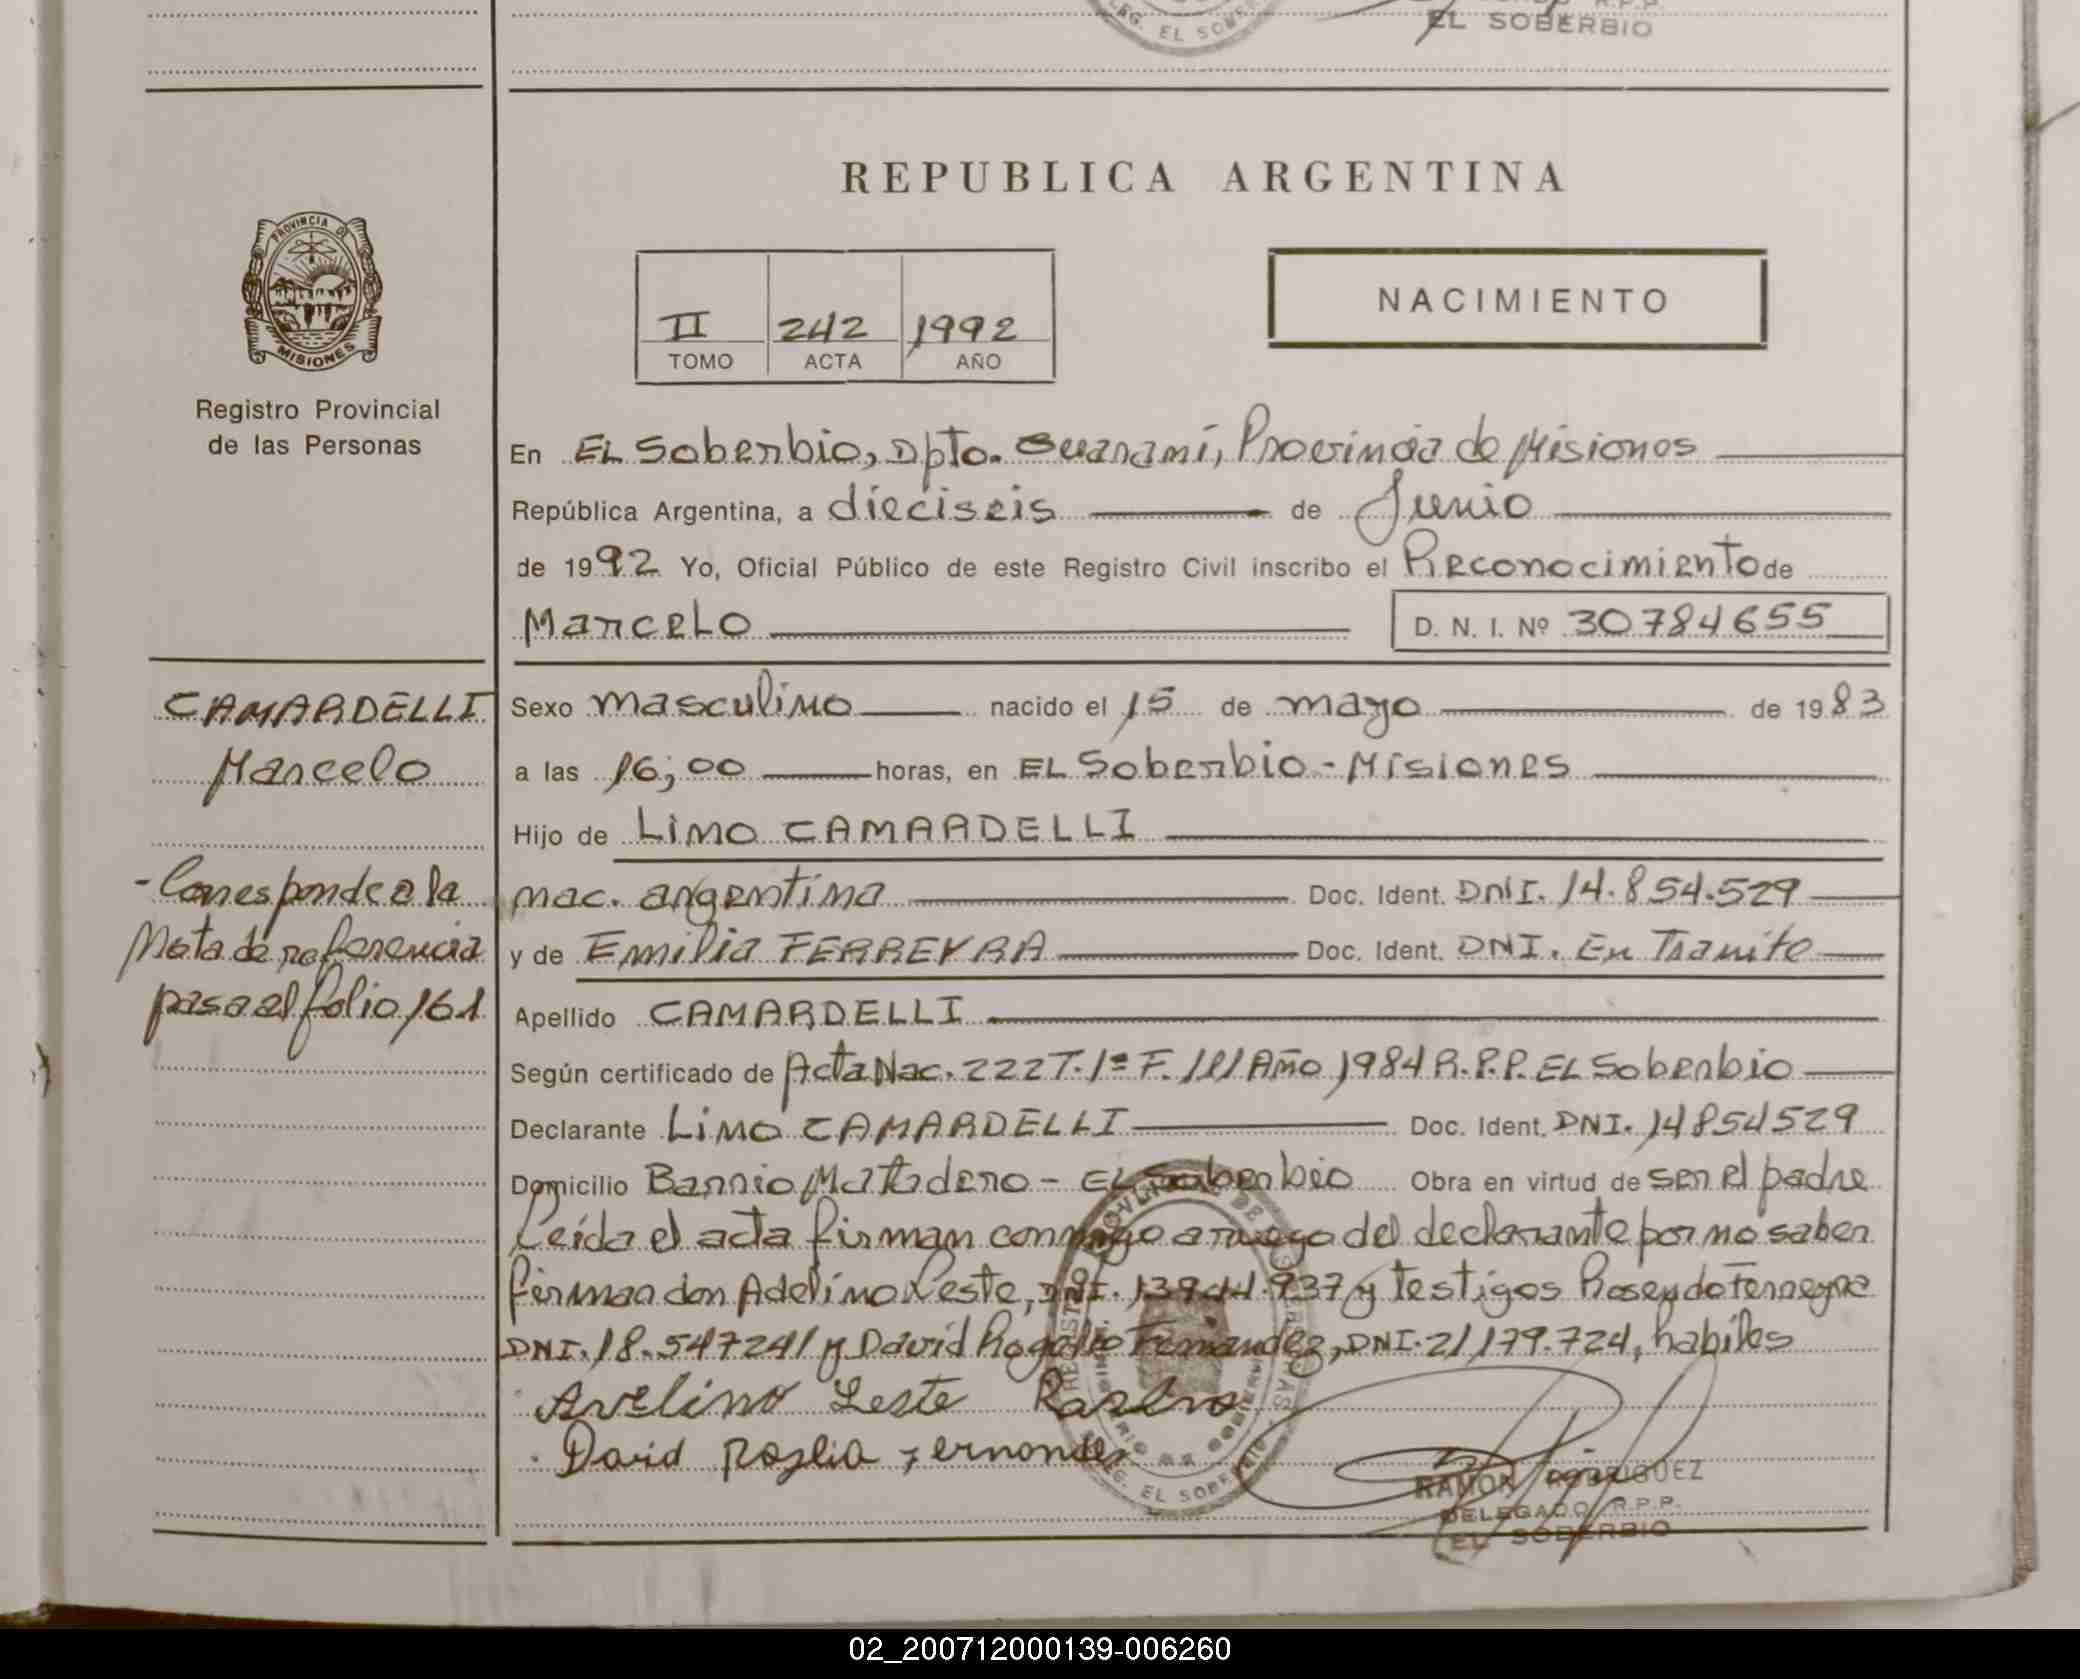 LEG. EL SOBER
EL SOBERBIO
REPUBLICA ARGENTINA
PROVINCIA DE
MISIONES
Registro Provincial
de las Personas
II 242 1992
TOMO ACTA AÑO
NACIMIENTO
En EL Soberbio, Dpto. Guaraní, Provincia de Misiones
República Argentina, a dieciseis de Junio
de 1992 Yo, Oficial Público de este Registro Civil inscribo el Reconocimiento de
Marcelo D. N. I. Nº 30784655
CAMARDELLI
Marcelo
- Corresponde a la
Nota de referencia
pasa al folio 161
Sexo masculino nacido el 15 de mayo de 1983
a las 16,00 horas, en EL Soberbio - Misiones
Hijo de Lino CAMARDELLI
nac. argentina Doc. Ident. DNI. 14.854.529
y de Emilia FERREYRA Doc. Ident. DNI. En Tramite
Apellido CAMARDELLI
Según certificado de Acta Nac. 222 T. 1º F. 111 Año 1984 R.P.P. EL Soberbio
Declarante Lino CAMARDELLI Doc. Ident. DNI. 14854529
Domicilio Barrio Matadero - EL Soberbio Obra en virtud de ser el padre
Leída el acta firman conmigo a ruego del declarante por no saber
firmar don Adelino Leste, DNI. 13944.937 y testigos Rosendo Ferreyra
DNI. 18.547241 y David Rogelio Fernandez, DNI. 21179.724, habiles
Avelino Leste
David Roglia Fernandez
EL SOBERBIO
RAMON RODRIGUEZ
DELEGADO R.P.P.
EL SOBERBIO
02_200712000139-006260